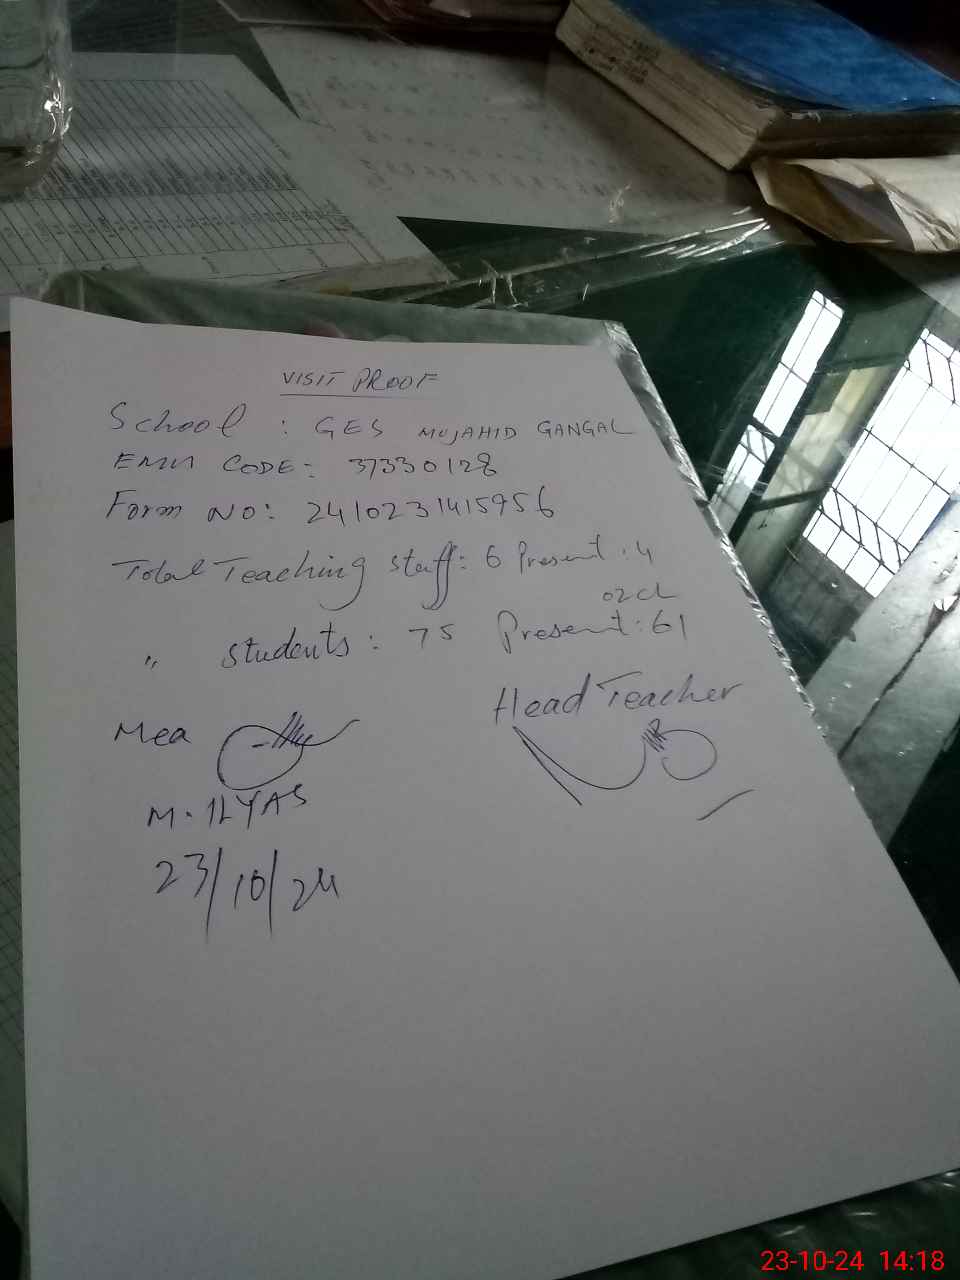 VISIT PROOF
School : GES MUJAHID GANGAL
EMIS CODE: 37330128
Form NO: 2410231415956
Total Teaching staff: 6 Present: 4
02 CL
" students: 75 Present: 61
Mea
Head Teacher
M. ILYAS
23/10/24
23-10-24 14:18